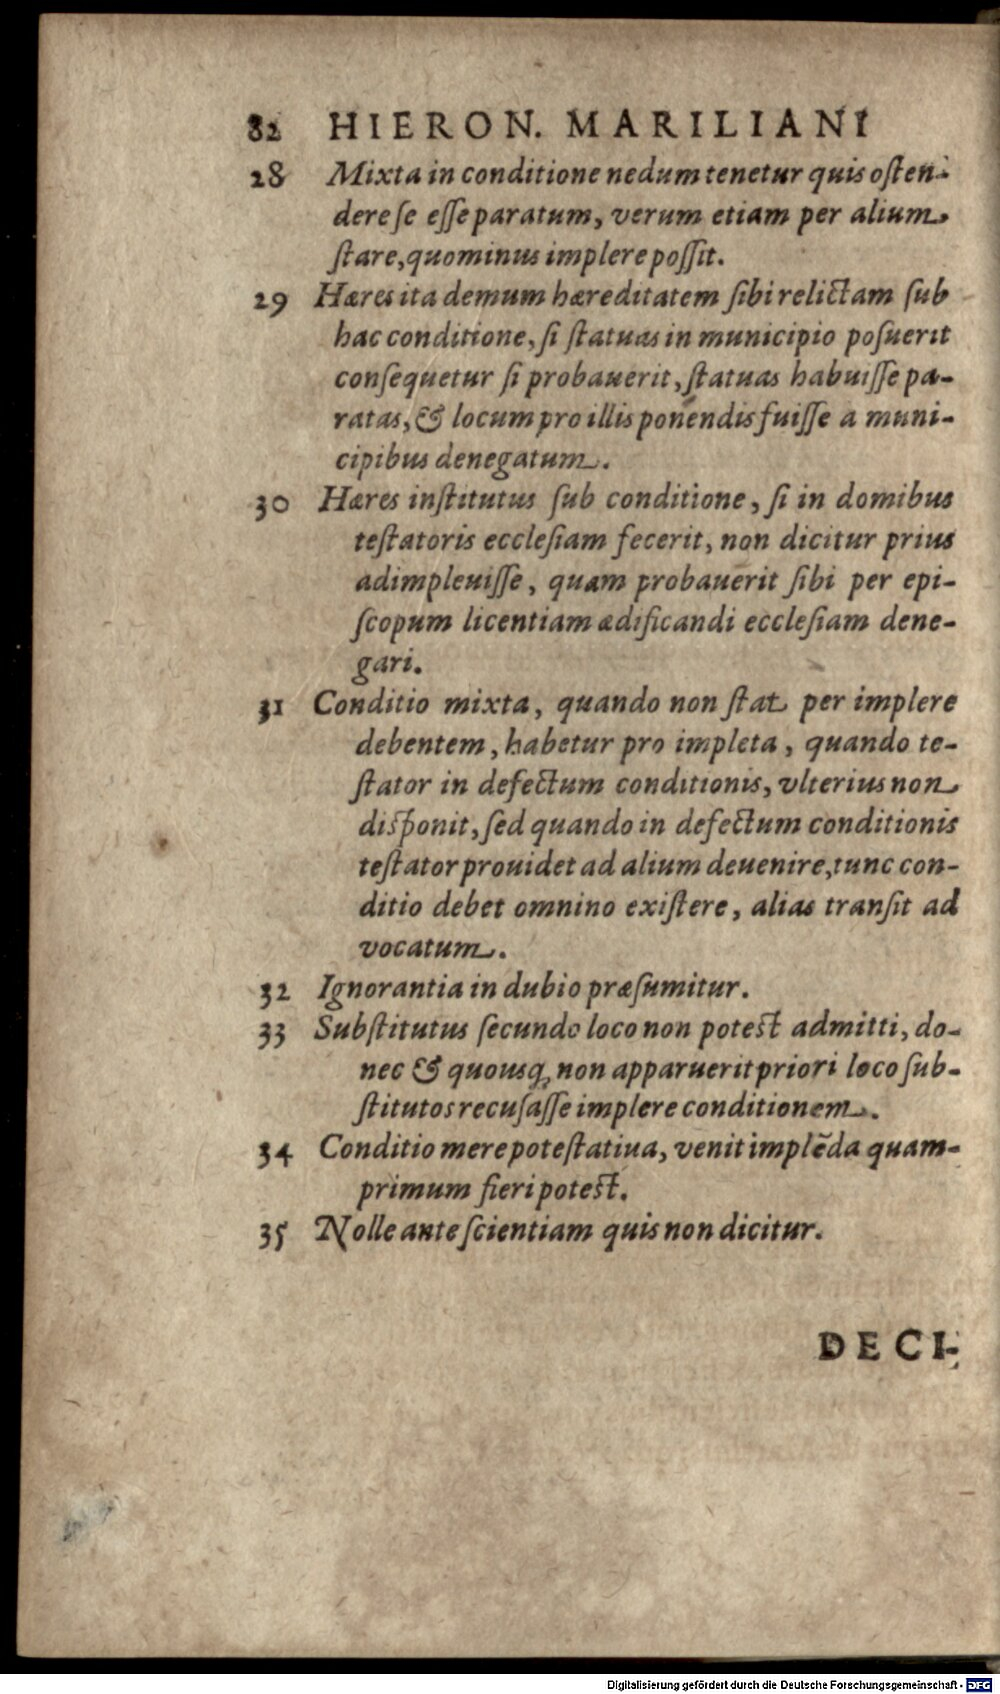 82 HIERON. MARILIANI
28 Mixta in conditione nedum tenetur quis osten-
dere se esse paratum, verum etiam per alium
stare, quominus implere possit.
29 Hæres ita demum hæreditatem sibi relictam sub
hac conditione, si statuas in municipio posuerit
consequetur si probauerit, statuas habuisse pa-
ratas, & locum pro illis ponendis fuisse a muni-
cipibus denegatum.
30 Hæres institutus sub conditione, si in domibus
testatoris ecclesiam fecerit, non dicitur prius
adimpleuisse, quam probauerit sibi per epi-
scopum licentiam ædificandi ecclesiam dene-
gari.
31 Conditio mixta, quando non stat per implere
debentem, habetur pro impleta, quando te-
stator in defectum conditionis, vlterius non
disponit, sed quando in defectum conditionis
testator prouidet ad alium deuenire, tunc con-
ditio debet omnino existere, alias transit ad
vocatum.
32 Ignorantia in dubio præsumitur.
33 Substitutus secundo loco non potest admitti, do-
nec & quousq; non apparuerit priori loco sub-
stitutos recusasse implere conditionem.
34 Conditio mere potestatiua, venit implẽda quam-
primum fieri potest.
35 Nolle ante scientiam quis non dicitur.
DECI-
Digitalisierung gefördert durch die Deutsche Forschungsgemeinschaft - DFG